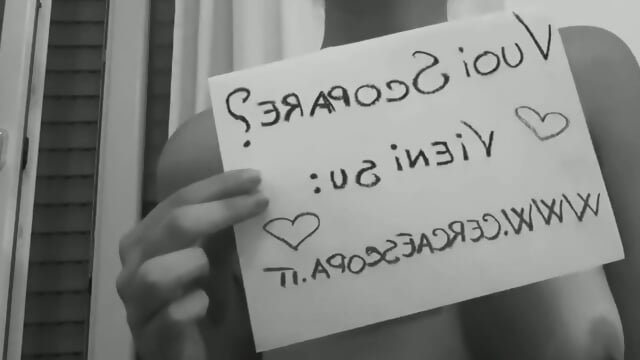 Vuoi Scopare?
Vieni su:
WWW.CERCAESCOPA.IT